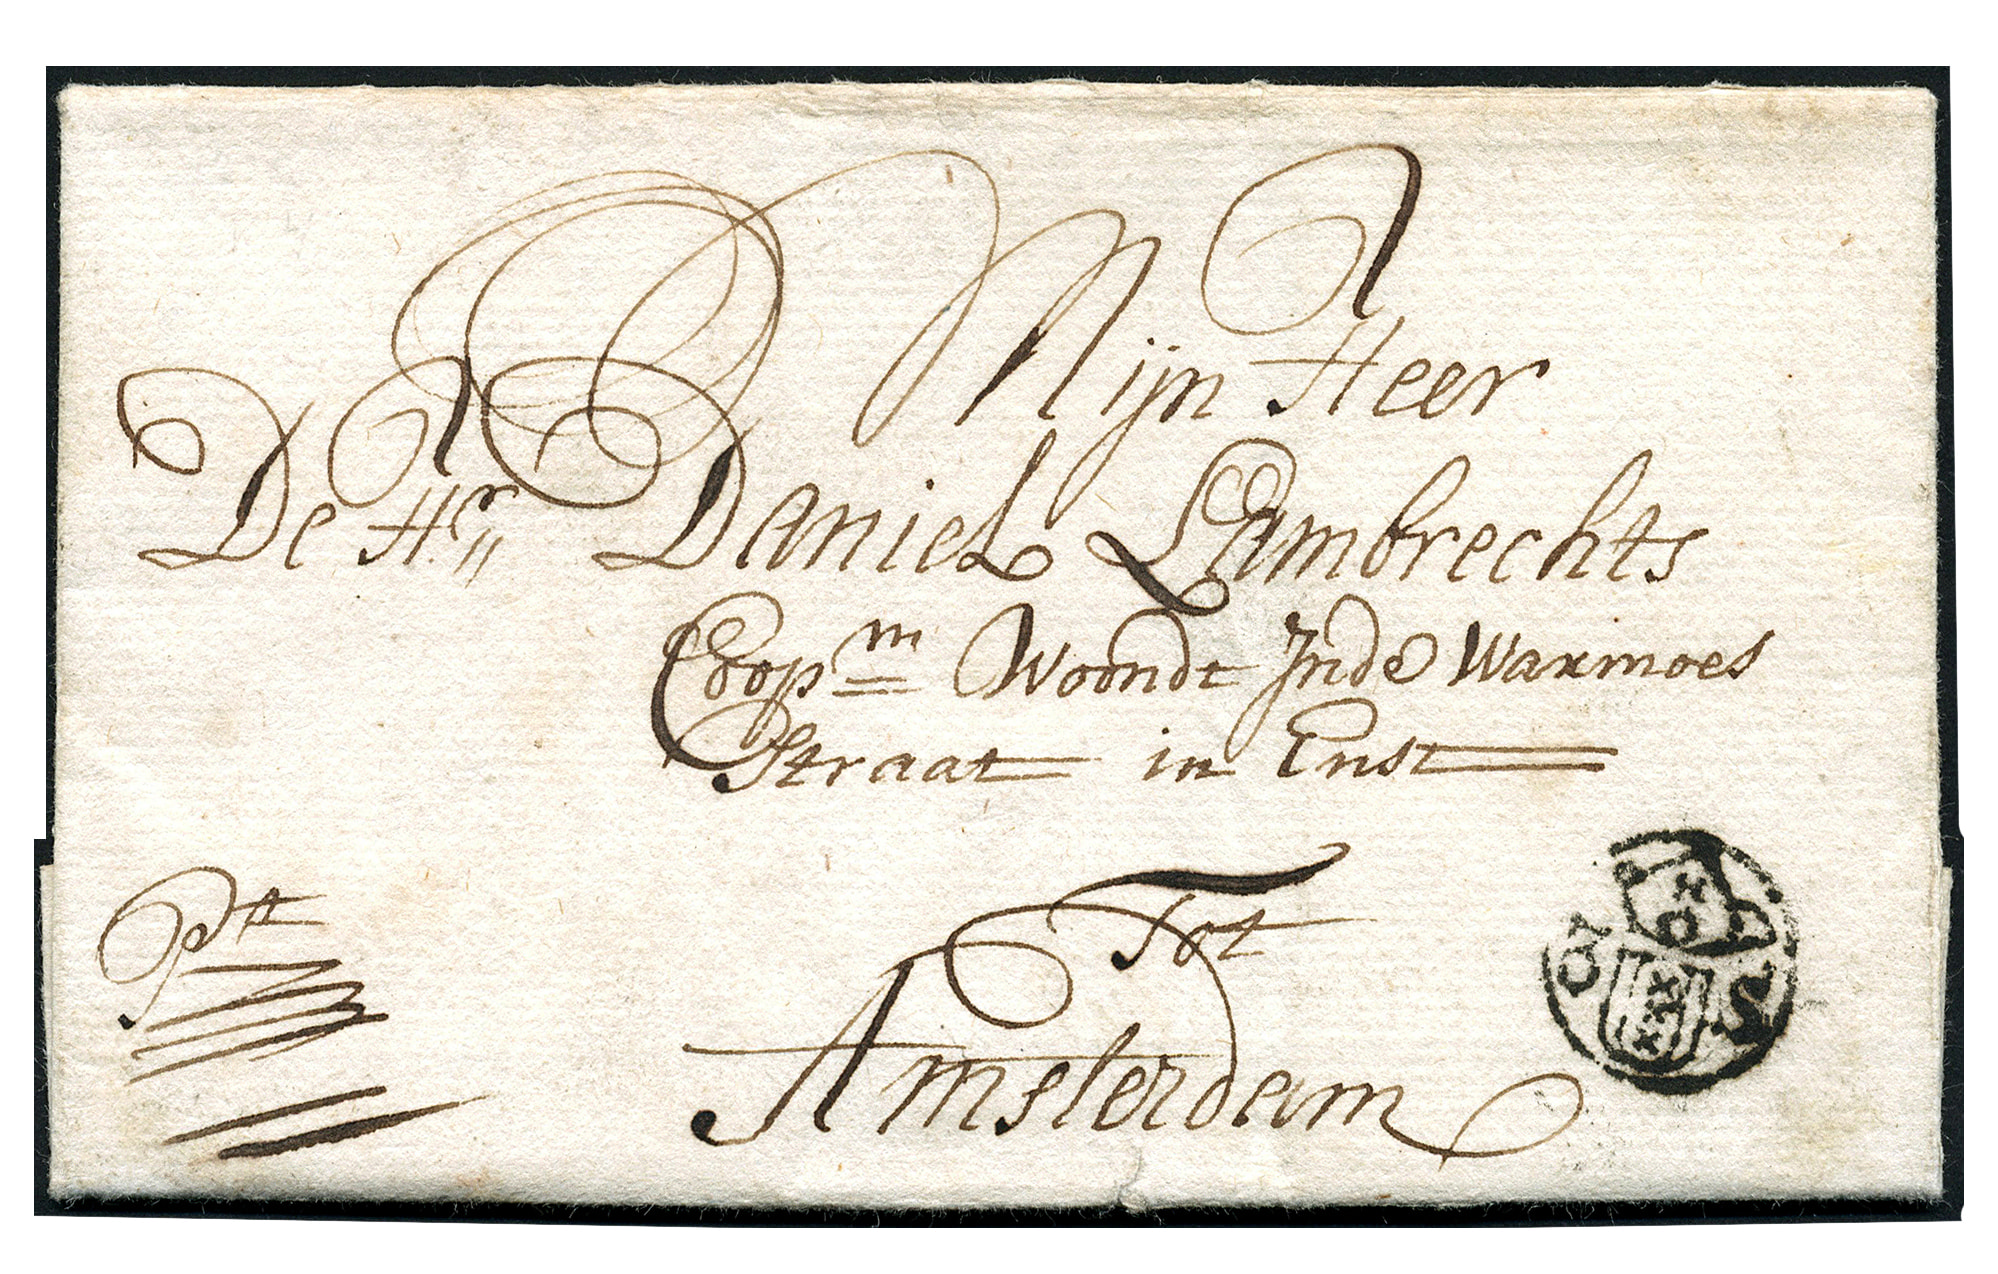 Mijn Heer
De Hr Daniel Lambrechts
Coopm Woondt Inde Warmoes
Straat in Enst
Tot
Amsterdam
Ptt
S